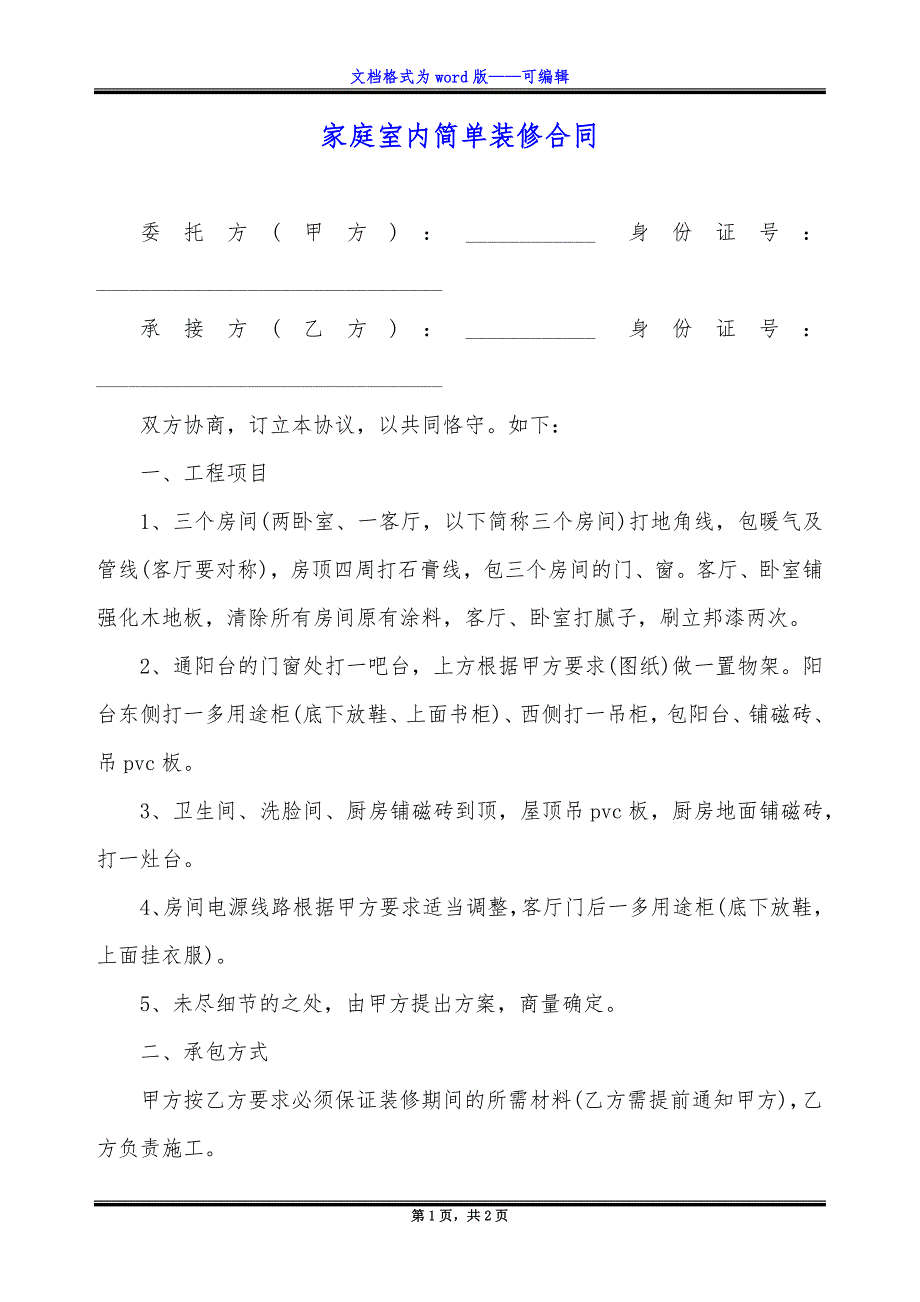 文档格式为 word 版——可编辑
家庭室内简单装修合同
委托方(甲方)：____________ 身份证号：
________________________________
承接方(乙方)：____________ 身份证号：
________________________________
双方协商，订立本协议，以共同恪守。如下：
一、工程项目
1、三个房间(两卧室、一客厅，以下简称三个房间)打地角线，包暖气及
管线(客厅要对称)，房顶四周打石膏线，包三个房间的门、窗。客厅、卧室铺
强化木地板，清除所有房间原有涂料，客厅、卧室打腻子，刷立邦漆两次。
2、通阳台的门窗处打一吧台，上方根据甲方要求(图纸)做一置物架。阳
台东侧打一多用途柜(底下放鞋、上面书柜)、西侧打一吊柜，包阳台、铺磁砖、
吊 pvc 板。
3、卫生间、洗脸间、厨房铺磁砖到顶，屋顶吊 pvc 板，厨房地面铺磁砖，
打一灶台。
4、房间电源线路根据甲方要求适当调整，客厅门后一多用途柜(底下放鞋，
上面挂衣服)。
5、未尽细节的之处，由甲方提出方案，商量确定。
二、承包方式
甲方按乙方要求必须保证装修期间的所需材料(乙方需提前通知甲方)，乙
方负责施工。
第 1 页，共 2 页